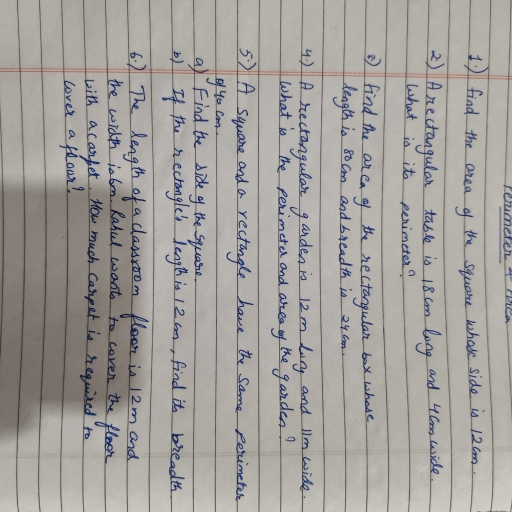 Perimeter & Area
1.) find the area of the square whose side is 12cm.
2) A rectangular table is 18cm long and 46m wide.
what is its perimeter?
3) find the area of the rectangular box whose
length is 80 cm and breadth is 24cm.
4.) A rectangular garden is 12m long and 11m wide.
what is the perimeter and area of the garden?
5.) A square and a rectangle have the same perimeter
of 40 cm.
a) Find the side of the square.
b) If the rectangle's length is 12cm, find its breadth
6.) The length of a classroom floor is 12m and
the width is 6m Rahul wants to cover the floor
with a carpet. How much carpet is required to
cover a floor?